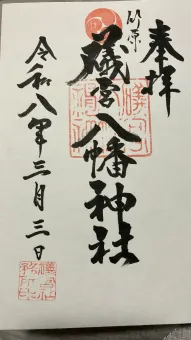 奉拝
竹原
礒宮八幡神社
令和八年三月三日